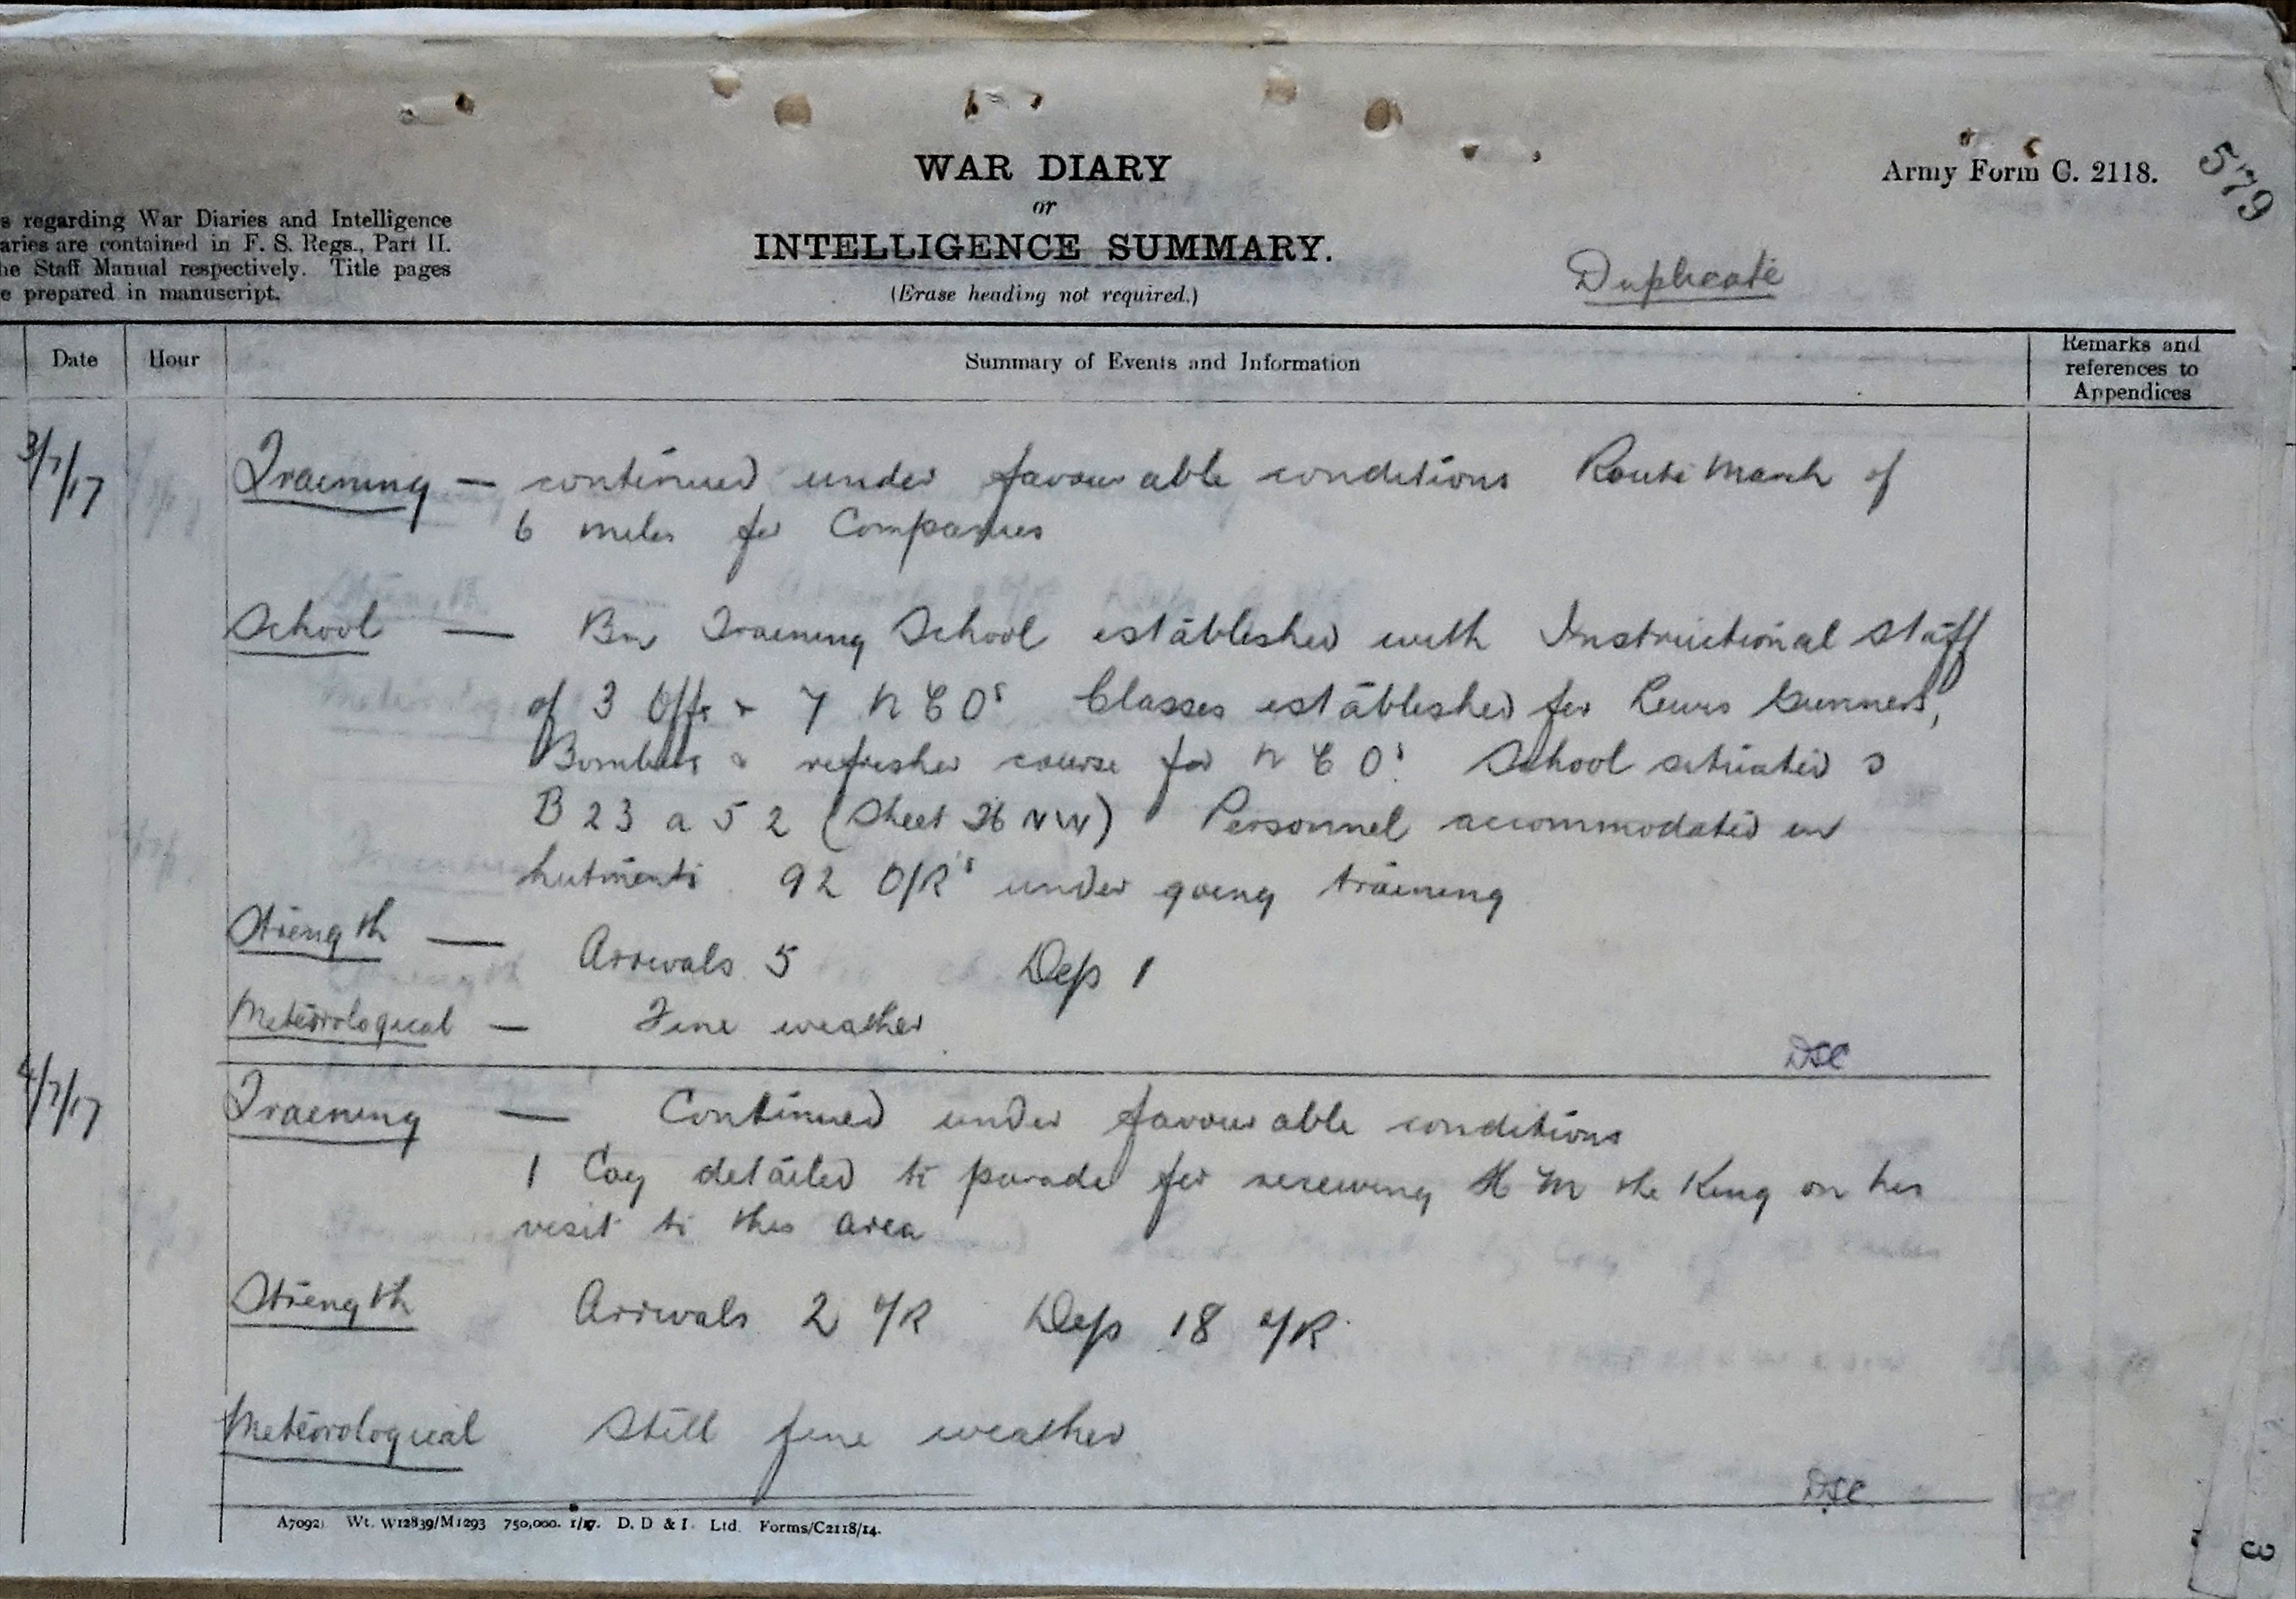 WAR DIARY
or
INTELLIGENCE SUMMARY.
(Erase heading not required.)
Army Form C. 2118.
579
Duplicate
s regarding War Diaries and Intelligence
aries are contained in F. S. Regs., Part II.
he Staff Manual respectively. Title pages
e prepared in manuscript.
Date Hour Summary of Events and Information Remarks and references to Appendices
3/7/17 Training — continued under favourable conditions Route March of
6 miles for Companies
School — Bn Training School established with Instructional Staff
of 3 Offs & 7 N C Os Classes established for Lewis Gunners,
Bombers & refresher course for N C Os. School situated
B 23 a 5 2 (Sheet 36 NW) Personnel accommodated in
hutments. 92 O/Rs under going training
Strength — Arrivals 5 Dep 1
Meteorological — Fine weather
DSC
4/7/17 Training — Continued under favourable conditions
1 Coy detailed to parade for receiving H M the King on his
visit to this area
Strength Arrivals 2 O/R Dep 18 O/R
Meteorological Still fine weather
DSC
A7092) Wt. W12839/M1293 750,000. 1/17. D. D & L Ltd. Forms/C2118/14.
3